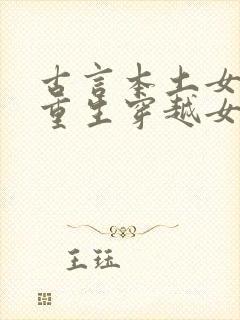 古言本土女
重生穿越女
王珏